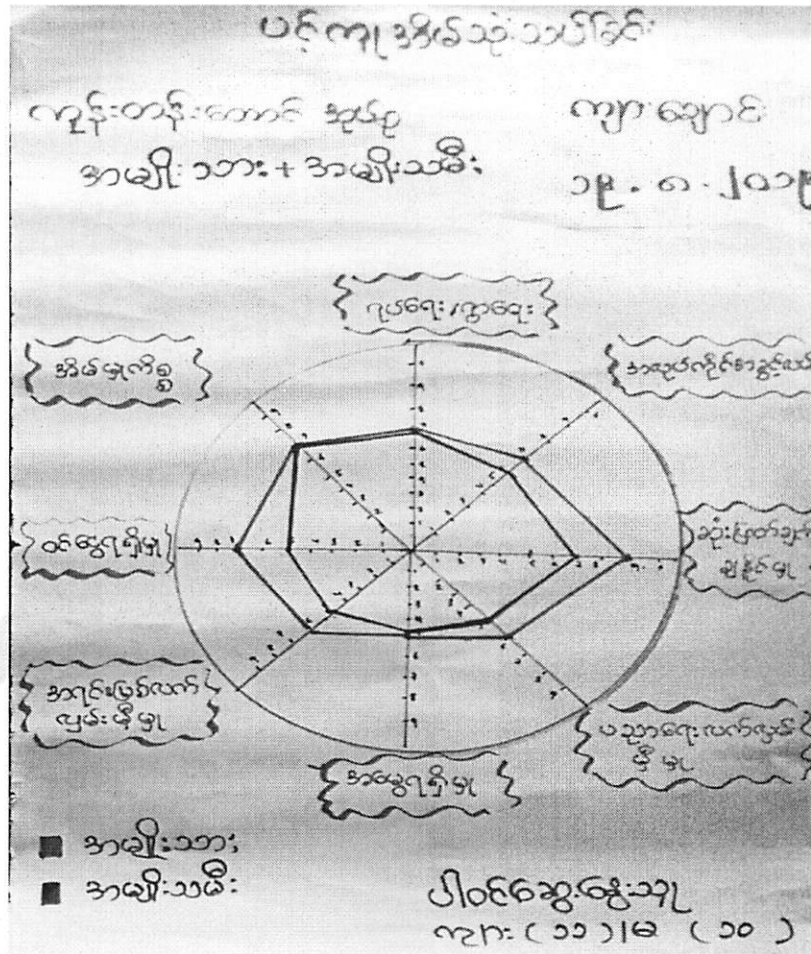 ပင့်ကူအိမ်သုံးသပ်ခြင်း
ကုန်းတန်းတောင် အုပ်စု
ကျားချောင်း
အမျိုးသား + အမျိုးသမီး
၁၉ . ၈ . ၂၀၁၉
ရပ်ရေး/ရွာရေး
အိမ်မှုကိစ္စ
အလုပ်ကိုင်စာခွင့်လမ်
ဝင်ငွေရရှိမှု
ဆုံးဖြတ်ချက်
ချနိုင်မှု
အရင်းမြစ်လက်
လှမ်းမှီမှု
ပညာရေးလက်လှမ်း
မှီမှု
အမွေရရှိမှု
အမျိုးသား
အမျိုးသမီး
ပါဝင်ဆွေးနွေးသူ
ကျား (၁၁) ၊ မ (၁၀ )